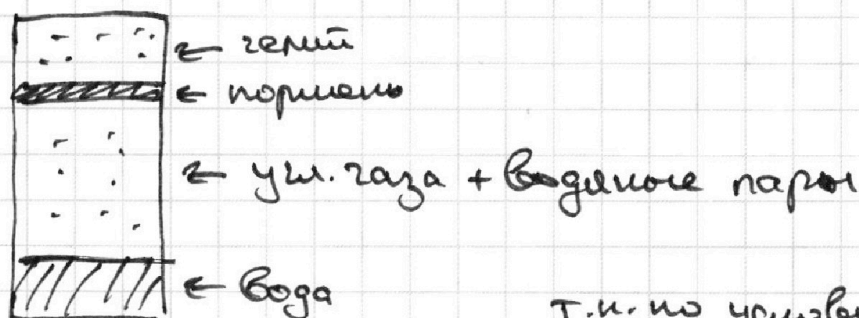 ← гелий
← поршень
← угл. газа + водяные пары
← вода
т.к. по услов